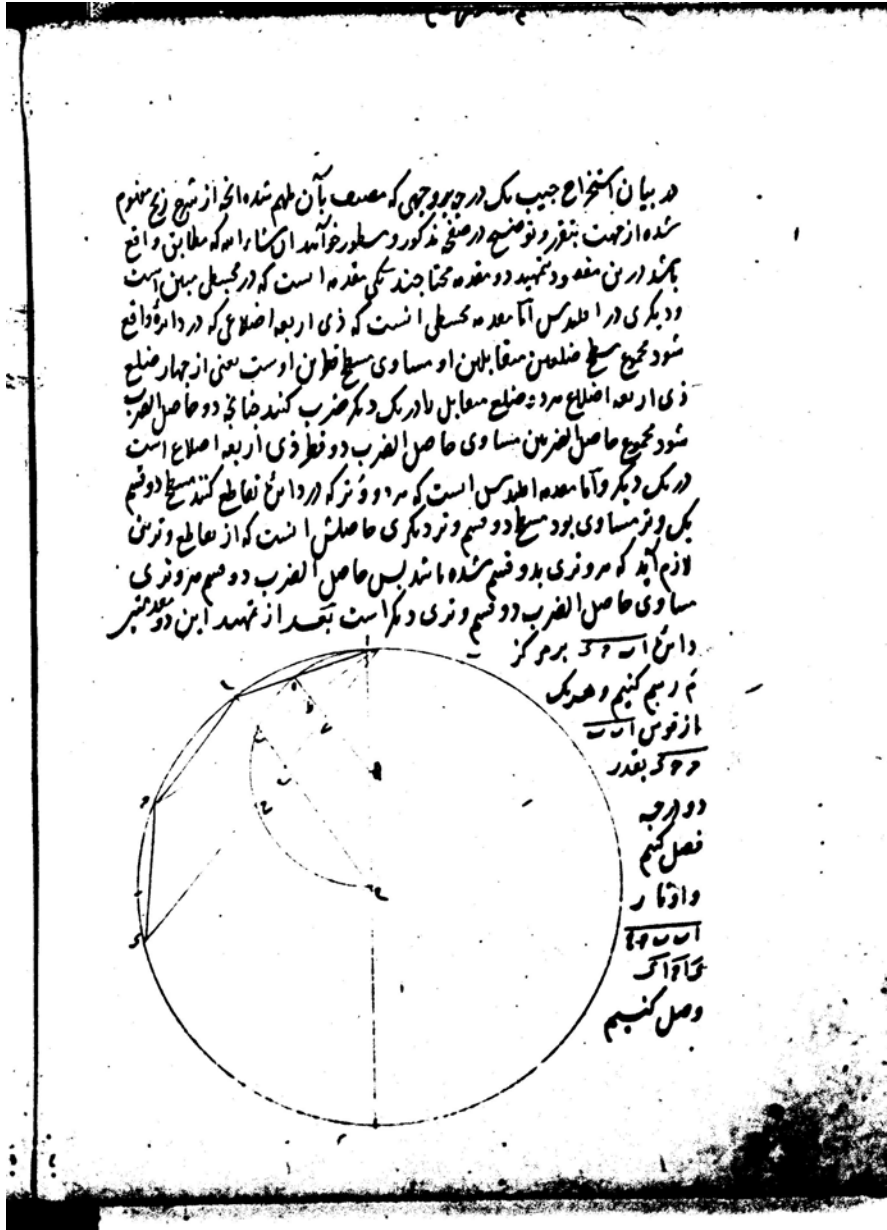 در بیان استخراج جیب یک درجه بروجهی که مصنف بآن ملهم شده انچه از شرح زیج مفهوم
شده از جهت تقرر و توضیح در صفحه مذکور و مسطور خواهد ان شاء الله که مطابق واقع
باشد درین مقصود بتمهید دو مقدمه محتاجند یکی مقدمه است که در مجسطی مبین است
و دیگری در اقلیدس اما مقدمه مجسطی انست که ذی اربعه اضلاعی که در دائره واقع
شود مجموع مسطح ضلعین متقابلین او مساوی مسطح قطرین اوست یعنی از چهار ضلع
ذی اربعه اضلاع هر دو ضلع متقابل را در یک دیگر ضرب کنند چنانچه دو حاصل الضرب
شود مجموع حاصل الضربین مساوی حاصل الضرب دو قطر ذی اربعه اضلاع است
در یک دیگر و اما مقدمه اقلیدس است که هر دو وتر که در دائره تقاطع کنند مسطح دو قسم
یک وتر مساوی بود مسطح دو قسم وتر دیگری حاصلش انست که از تقاطع وترین
لازم آید که هر وتری بدو قسم شده باشد پس حاصل الضرب دو قسم هر وتری
مساوی حاصل الضرب دو قسم وتری دیگر است بعد از تمهید این دو مقدمه
دائره ا ب ح د بر مرکز
رسم کنیم و هر یک
از قوس ا ب ب
ح ح د بقدر
دو درجه
فصل کنیم
و اوتار
ا ب ب ح
وصل کنیم